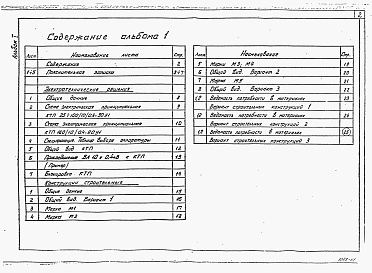 2
Альбом I
Содержание альбома 1
Лист Наименование листа Стр.
Содержание 2
1÷5 Пояснительная записка 3÷7
Электротехнические решения
1 Общие данные 8
2 Схема электрическая принципиальная 9
КТП
3 Схема электрическая принципиальная 10
КТП
4 аппаратуры 11
5 Общий вид КТП 12
6 Присоединение ВЛ 10 и 0,4кВ к КТП 13
(Пример)
7 Блокировка КТП 14
Конструкции строительные
1 Общие данные 15
2 Общий вид. Вариант 1 16
3 Марка М1 17
4 Марка М2 18
Лист Наименование Стр.
5 Марки М3; М4 19
6 Общий вид. Вариант 2 20
7 Марка М5 21
8 Общий вид. Вариант 3 22
Ведомость потребности в материалах 23
Вариант строительных конструкций 1
Ведомость потребности в материалах 24
Вариант строительных конструкций 2
Ведомость потребности в материалах (25)
Вариант строительных конструкций 3